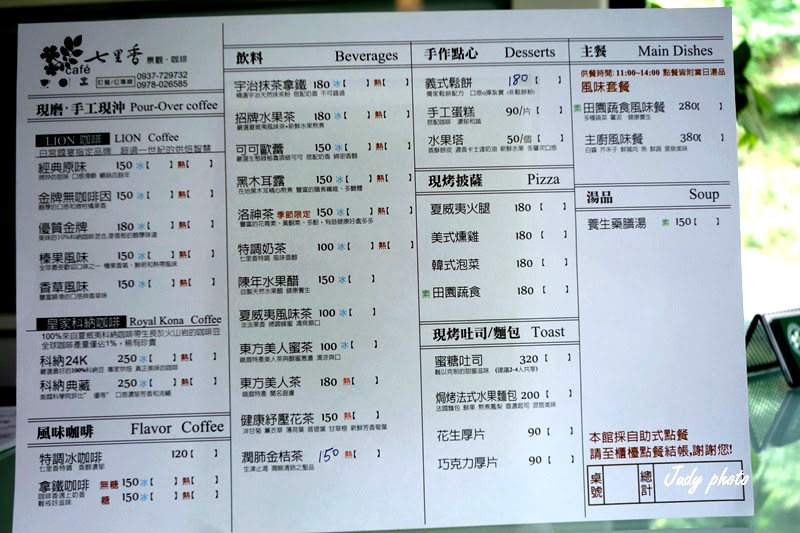 七里香 景觀．咖啡
café
訂餐/位專線 0937-729732
0978-026585
現磨．手工現沖 Pour-Over coffee
LION 咖啡 LION Coffee
白宮國宴指定品牌 超過一世紀的烘焙智慧
經典原味 150 冰【 】熱【 】
金牌無咖啡因 150 冰【 】熱【 】
優質金牌 180 冰【 】熱【 】
榛果風味 150 冰【 】熱【 】
香草風味 150 冰【 】熱【 】
皇家科納咖啡 Royal Kona Coffee
100%來自夏威夷科納咖啡帶生長於火山岩的咖啡豆
全球咖啡產量僅佔1%，稀有珍貴
科納24K 250 冰【 】熱【 】
科納典藏 250 冰【 】熱【 】
風味咖啡 Flavor Coffee
特調冰咖啡 120【 】
七里香特調 香醇濃郁
拿鐵咖啡 無糖 150 冰【 】熱【 】
糖 150 冰【 】熱【 】
飲料 Beverages
宇治抹茶拿鐵 180 冰【 】熱【 】
招牌水果茶 180 冰【 】熱【 】
可可歐蕾 150 冰【 】熱【 】
黑木耳露 150 冰【 】熱【 】
洛神茶 季節限定 150 冰【 】熱【 】
特調奶茶 100 冰【 】熱【 】
七里香特調 風味香醇
陳年水果醋 150 冰【 】
自製天然水果醋 健康養生
夏威夷風味茶 100 冰【 】
東方美人蜜茶 100 冰【 】
東方美人茶 180 熱【 】
健康紓壓花茶 150 熱【 】
潤肺金桔茶 150 熱【 】
手作點心 Desserts
義式鬆餅 180【 】
手工蛋糕 90/片【 】
水果塔 50/個【 】
現烤披薩 Pizza
夏威夷火腿 180【 】
美式燻雞 180【 】
韓式泡菜 180【 】
素 田園蔬食 180【 】
現烤吐司/麵包 Toast
蜜糖吐司 320【 】
難以克制的甜蜜滋味 (建議2-4人共享)
焗烤法式水果麵包 200【 】
花生厚片 90【 】
巧克力厚片 90【 】
主餐 Main Dishes
供餐時間: 11:00~14:00 點餐皆附當日湯品
風味套餐
素 田園蔬食風味餐 280【 】
主廚風味餐 380【 】
湯品 Soup
養生藥膳湯 素 150【 】
本館採自助式點餐
請至櫃檯點餐結帳,謝謝您!
桌號
總計
Judy photo